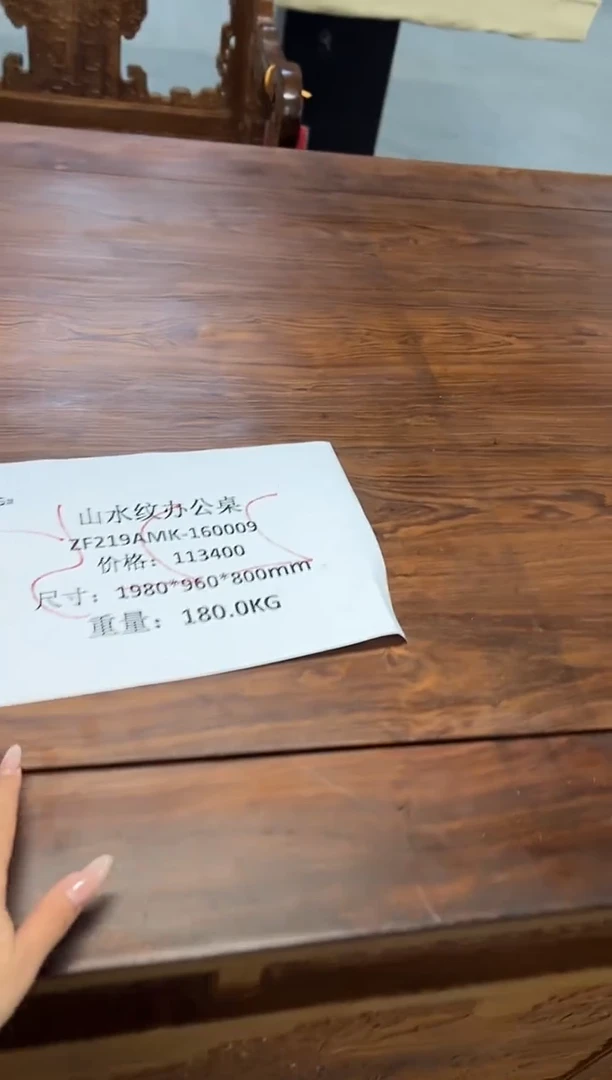 山水纹办公桌
ZF219AMK-160009
价格：113400
尺寸：1980*960*800mm
重量：180.0KG